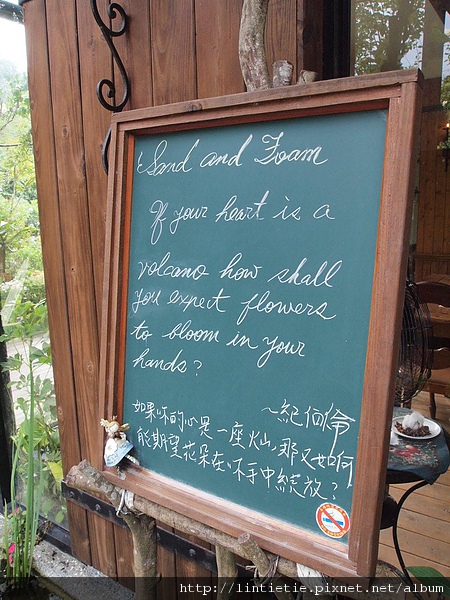 Sand and Foam
If your heart is a
volcano how shall
you expect flowers
to bloom in your
hands?
~紀伯倫
如果你的心是一座火山,那又如何
能期望花朵在你手中綻放?
http://lintietie.pixnet.net/album